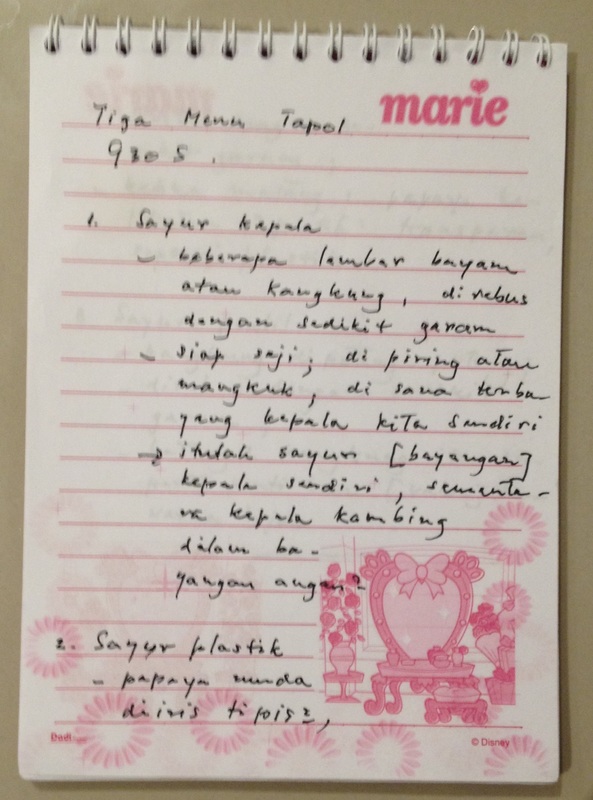 marie
Tiga Menu Tapol
G30S.
1. Sayur kepala
- beberapa lembar bayam
atau kangkung, direbus
dengan sedikit garam
- siap saji; di piring atau
mangkuk, di sana terba-
yang kepala kita sendiri
→ itulah sayur [bayangan]
kepala sendiri, sementa-
ra kepala kambing
dalam ba-
yangan angan2
2. Sayur plastik
- papaya muda
diiris tipis2,
© Disney